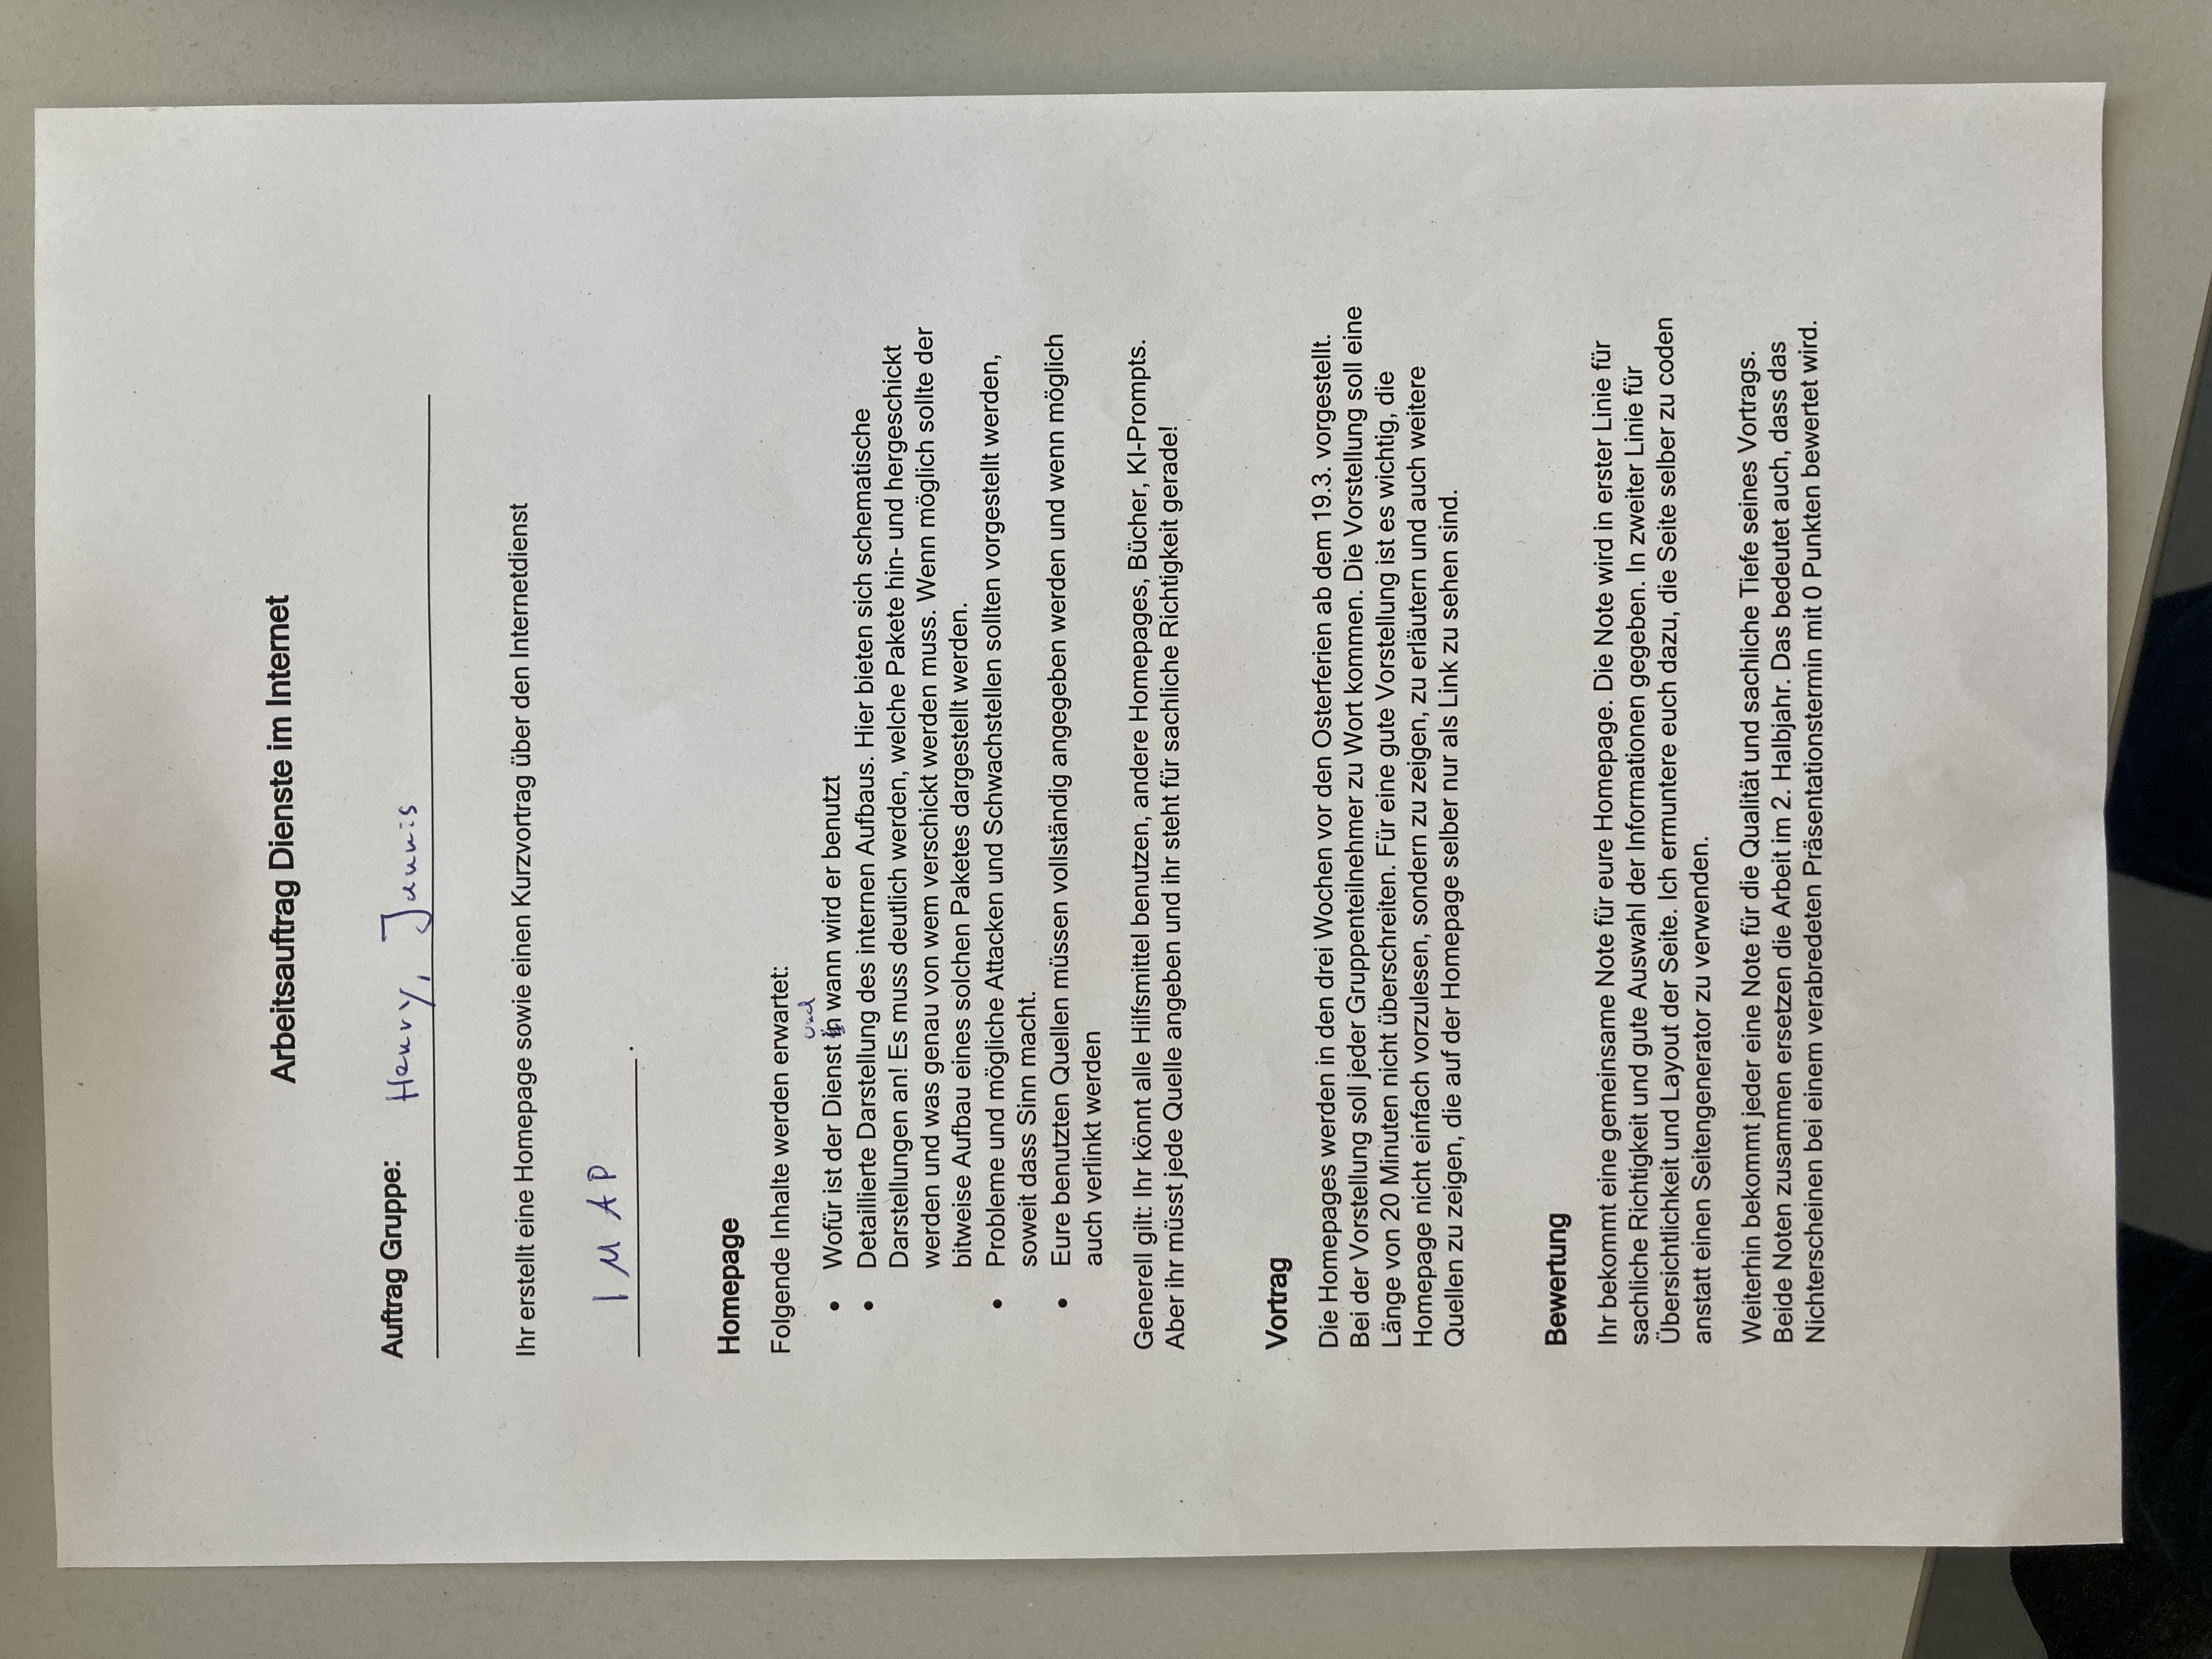 Arbeitsauftrag Dienste im Internet
Auftrag Gruppe: Henry, Jannis
Ihr erstellt eine Homepage sowie einen Kurzvortrag über den Internetdienst
IMAP.
Homepage
Folgende Inhalte werden erwartet:
und
• Wofür ist der Dienst in wann wird er benutzt
• Detaillierte Darstellung des internen Aufbaus. Hier bieten sich schematische
Darstellungen an! Es muss deutlich werden, welche Pakete hin- und hergeschickt
werden und was genau von wem verschickt werden muss. Wenn möglich sollte der
bitweise Aufbau eines solchen Paketes dargestellt werden.
• Probleme und mögliche Attacken und Schwachstellen sollten vorgestellt werden,
soweit dass Sinn macht.
• Eure benutzten Quellen müssen vollständig angegeben werden und wenn möglich
auch verlinkt werden
Generell gilt: Ihr könnt alle Hilfsmittel benutzen, andere Homepages, Bücher, KI-Prompts.
Aber ihr müsst jede Quelle angeben und ihr steht für sachliche Richtigkeit gerade!
Vortrag
Die Homepages werden in den drei Wochen vor den Osterferien ab dem 19.3. vorgestellt.
Bei der Vorstellung soll jeder Gruppenteilnehmer zu Wort kommen. Die Vorstellung soll eine
Länge von 20 Minuten nicht überschreiten. Für eine gute Vorstellung ist es wichtig, die
Homepage nicht einfach vorzulesen, sondern zu zeigen, zu erläutern und auch weitere
Quellen zu zeigen, die auf der Homepage selber nur als Link zu sehen sind.
Bewertung
Ihr bekommt eine gemeinsame Note für eure Homepage. Die Note wird in erster Linie für
sachliche Richtigkeit und gute Auswahl der Informationen gegeben. In zweiter Linie für
Übersichtlichkeit und Layout der Seite. Ich ermuntere euch dazu, die Seite selber zu coden
anstatt einen Seitengenerator zu verwenden.
Weiterhin bekommt jeder eine Note für die Qualität und sachliche Tiefe seines Vortrags.
Beide Noten zusammen ersetzen die Arbeit im 2. Halbjahr. Das bedeutet auch, dass das
Nichterscheinen bei einem verabredeten Präsentationstermin mit 0 Punkten bewertet wird.